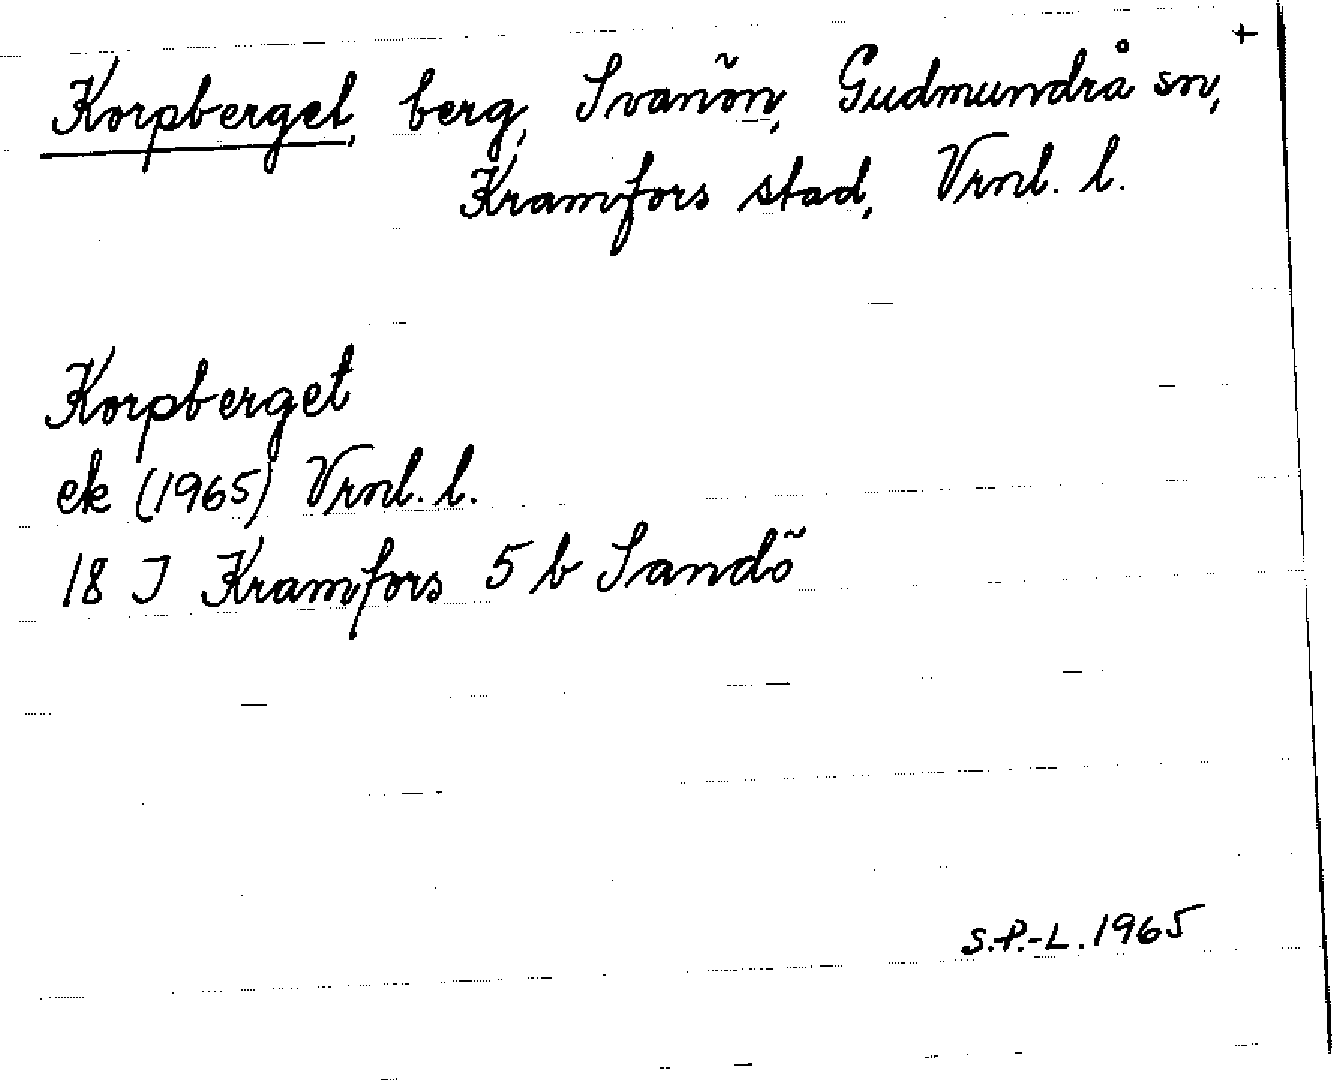 Korpberget, berg, Svanön, Gudmundrå sn, +
Kramfors stad, Vrnl. l.
Korpberget
ek (1965) Vrnl. l.
18 I Kramfors 5 b Sandö
S.P.-L. 1965